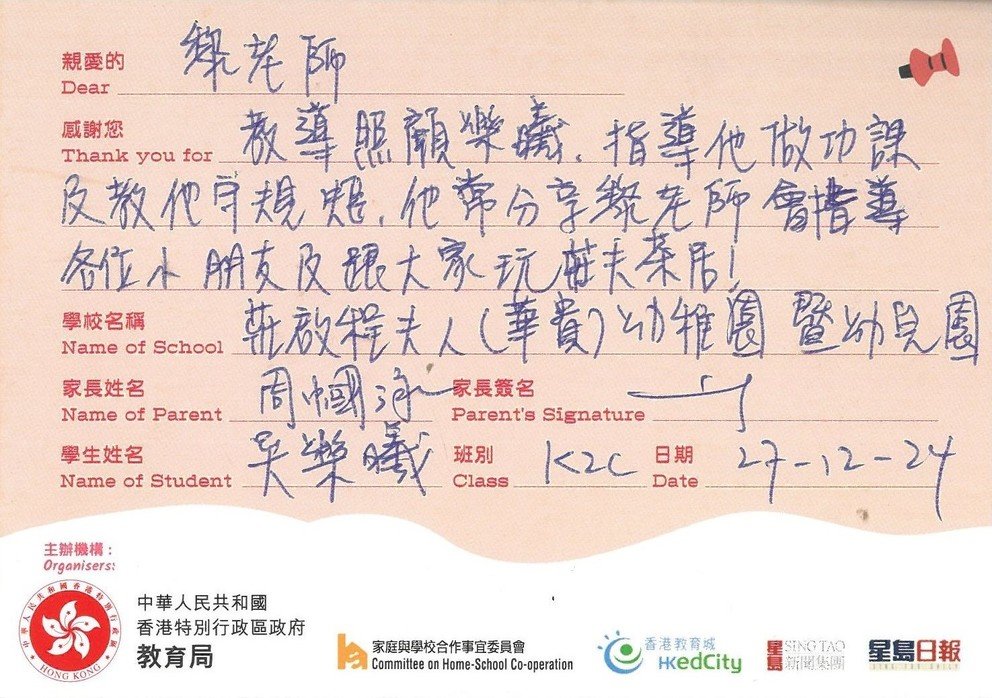 親愛的 黎老師
Dear
感謝您 教導照顧樂曦，指導他做功課
Thank you for
及教他守規矩，他常分享黎老師會指導
各位小朋友及跟大家玩
學校名稱 莊啟程夫人(華貴)幼稚園暨幼兒園
Name of School
家長姓名 周 家長簽名
Name of Parent Parent's Signature
學生姓名 吳樂曦 班別 K2C 日期 27-12-24
Name of Student Class Date
主辦機構：
Organisers:
中華人民共和國香港特別行政區
HONG KONG
中華人民共和國
香港特別行政區政府
教育局
家庭與學校合作事宜委員會
Committee on Home-School Co-operation
香港教育城
HKedCity
星島 SING TAO
新聞集團
星島日報